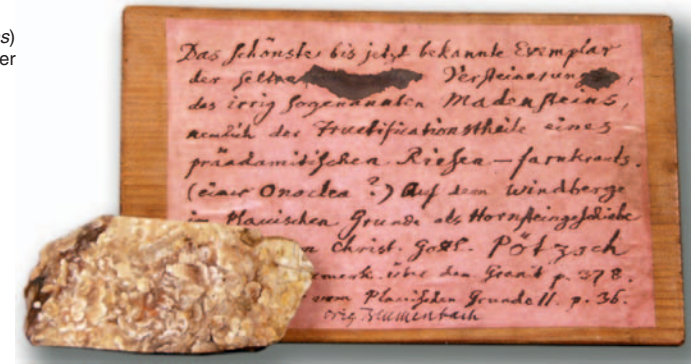 s)
er
Das schönste bis jetzt bekannte Exemplar
der seltnen Versteinerung,
des irrig sogenannten Madensteins,
nemlich der Fructificationstheile eines
präadamitischen Riesen-farnkrauts.
(einer Onoclea?) Auf dem Windberge
im Plauischen Grunde als Hornsteingeschiebe
Christ. Gottl. Pötzsch
über den Granit p. 378.
vom Plauischen Grunde II. p. 36.
orig. Blumenbach